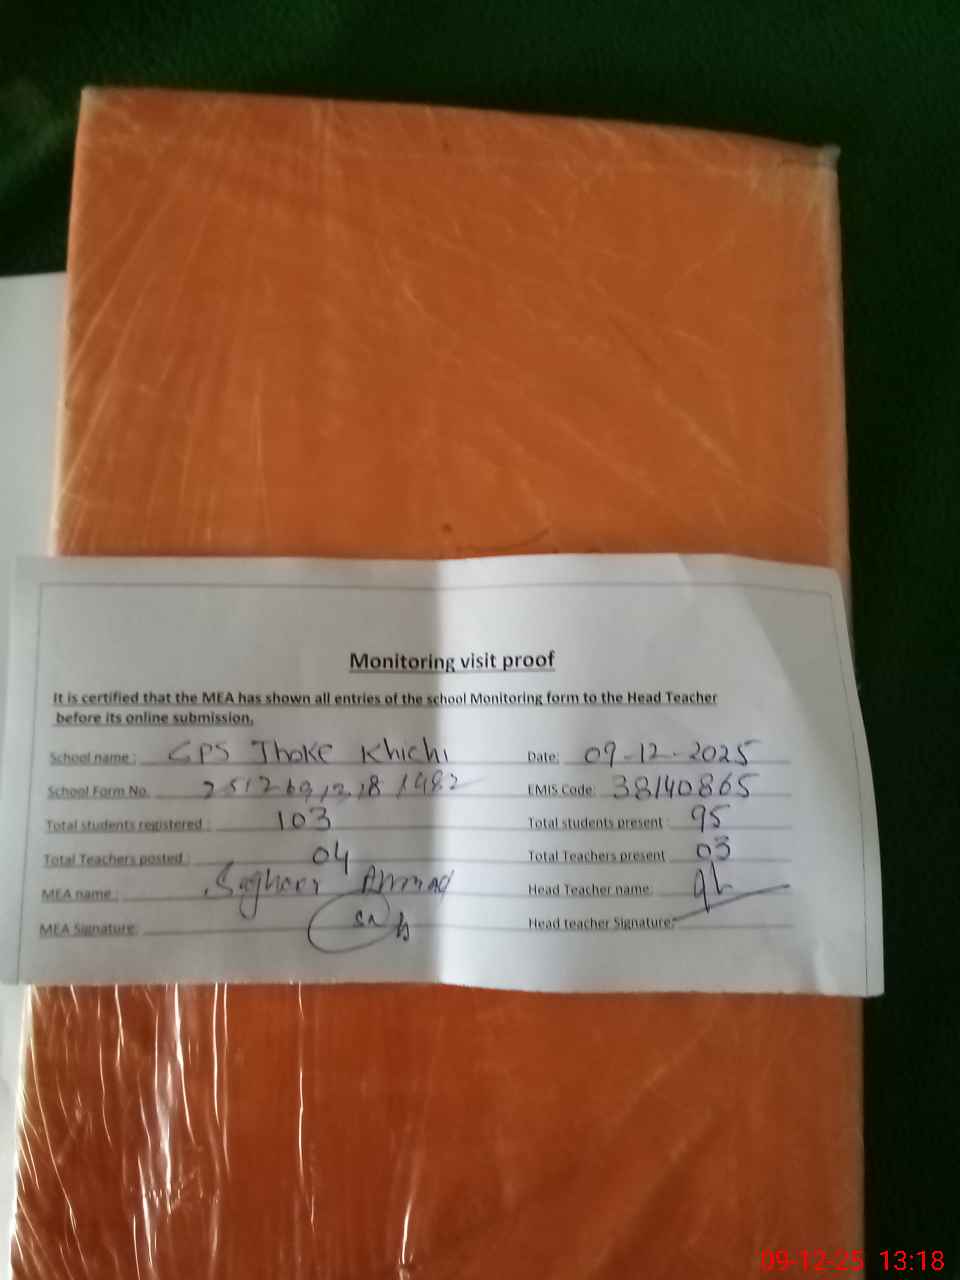 Monitoring visit proof
It is certified that the MEA has shown all entries of the school Monitoring form to the Head Teacher
before its online submission.
School name: GPS Thoke Khichi Date: 09-12-2025
School Form No. EMIS Code: 38140865
Total students registered: 103 Total students present: 95
Total Teachers posted: 04 Total Teachers present 03
MEA name: Ahmad Head Teacher name:
MEA Signature: Head teacher Signature:
09-12-25 13:18